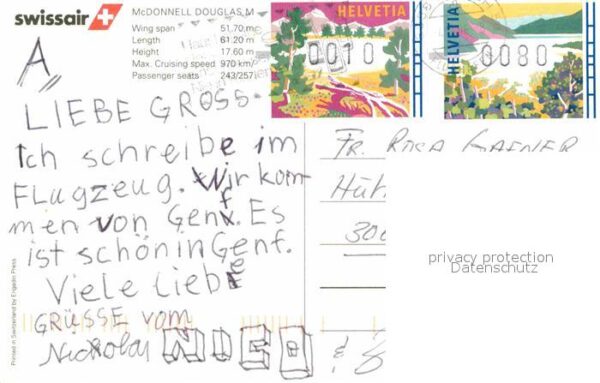 swissair
McDONNELL DOUGLAS M
Wing span 51.70 m
Length 61.20 m
Height 17.60 m
Max. Cruising speed 970 km/
Passenger seats 243/257
HELVETIA
0010
HELVETIA
0080
A
LIEBE GROSS-
Ich schreibe im
Flugzeug. Wir kom-
men von Genf. Es
ist schön in Genf.
Viele liebe
GRÜSSE vom
NICO
Fr. Rosa
Hüh
300
&
privacy protection
Datenschutz
Printed in Switzerland by Engadin Press